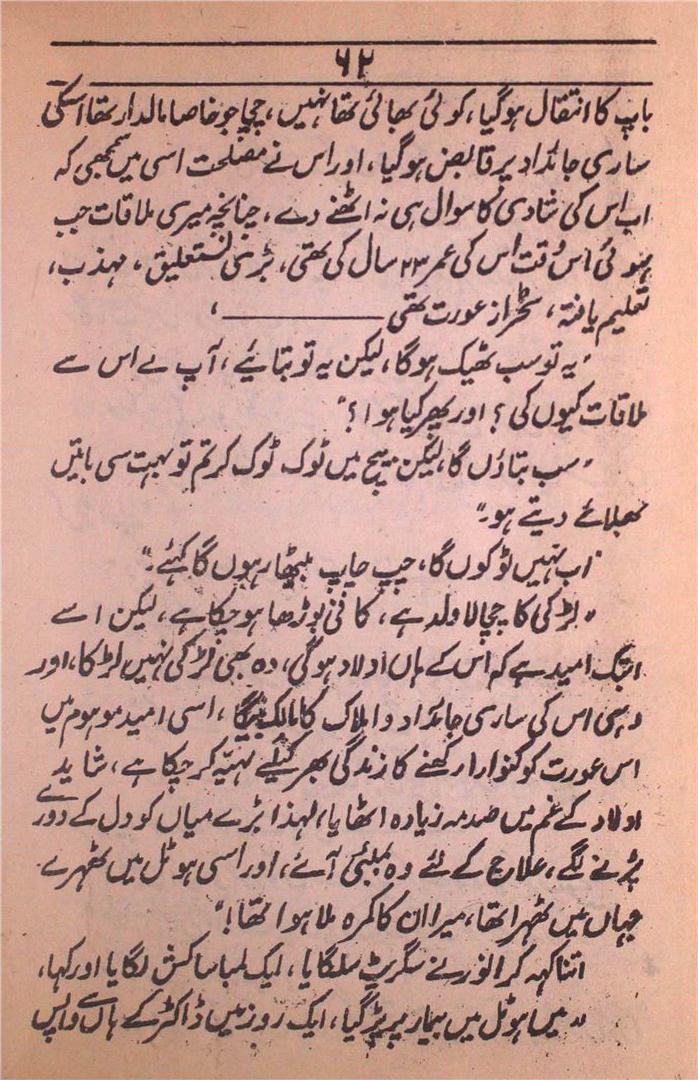 ۶۲
باپ کا انتقال ہوگیا، کوئی بھائی تھا نہیں، چچا جو خاصا مالدار تھا اسکی
ساری جائداد پر قابض ہوگیا، اور اس نے مصلحت اسی میں سمجھی کہ
اب اس کی شادی کا سوال ہی نہ اٹھنے دے، چنانچہ میری ملاقات جب
ہوئی اس وقت اس کی عمر ۲۳ سال کی تھی، بڑی نستعلیق، مہذب،
تعلیم یافتہ، عورت تھی ـــــــــ،
"یہ تو سب ٹھیک ہوگا، لیکن یہ تو بتائیے، آپ نے اس سے
ملاقات کیوں کی؟ اور پھر کیا ہوا؟"
"سب بتاؤں گا، لیکن بیچ میں ٹوک ٹوک کر تم تو بہت سی باتیں
بھلائے دیتے ہو۔"
"اب نہیں ٹوکوں گا، چپ چاپ بیٹھا رہوں گا کہئے۔"
"لڑکی کا چچا لاولد ہے، کافی بوڑھا ہو چکا ہے، لیکن اسے
ابتک امید ہے کہ اس کے ہاں اولاد ہوگی، وہ بھی لڑکی نہیں لڑکا، اور
وہی اس کی ساری جائداد و املاک کا مالک بنیگا، اسی امید موہوم میں
اس عورت کو کنوارا رکھنے کا زندگی بھر کیلئے تہیّہ کر چکا ہے، شاید
اولاد کے غم میں صدمہ زیادہ اٹھایا، لہذا بڑے میاں کو دل کے دورے
پڑنے لگے، علاج کے لئے وہ بمبئی آئے، اور اسی ہوٹل میں ٹھہرے
جہاں میں ٹھہرا تھا، میرا ان کا کمرہ ملا ہوا تھا!"
اتنا کہہ کر انور نے سگریٹ سلگایا، ایک لمبا سا کش لگایا اور کہا،
"میں ہوٹل میں بیمار پڑ گیا، ایک روز میں ڈاکٹر کے ہاں سے واپس